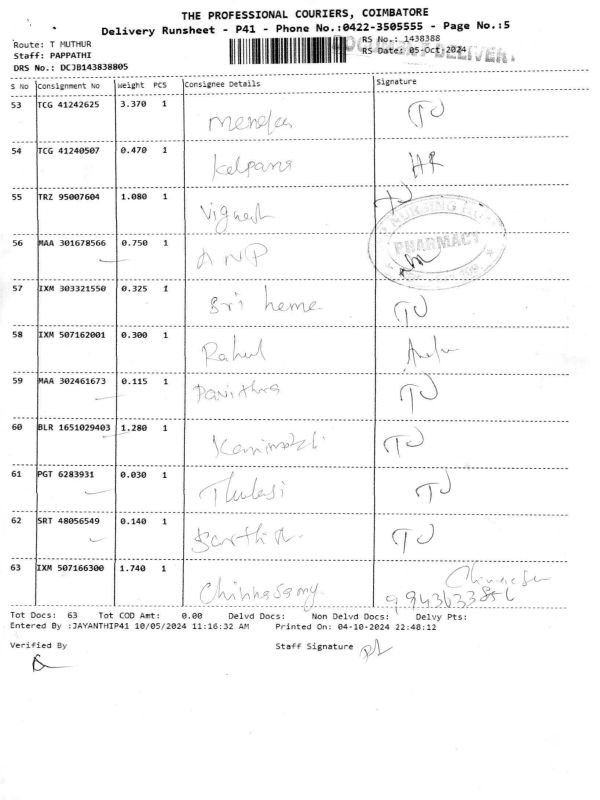 THE PROFESSIONAL COURIERS, COIMBATORE
Delivery Runsheet - P41 - Phone No.:0422-3505555 - Page No.:5
Route: T MUTHUR RS No.: 1438388
Staff: PAPPATHI RS Date: 05-Oct-2024
DRS No.: DCJB143838805
S No Consignment No Weight PCS Consignee Details Signature
53 TCG 41242625 3.370 1
54 TCG 41240507 0.470 1 Kalpana HR
55 TRZ 95007604 1.080 1 Vignesh
NURSING
PHARMACY
56 MAA 301678566 0.750 1 ANP
57 IXM 303321550 0.325 1 Sri heme
58 IXM 507162001 0.300 1 Rahul
59 MAA 302461673 0.115 1 Pavithra
60 BLR 1651029403 1.280 1 Kanimozhi
61 PGT 6283931 0.030 1 Thulasi
62 SRT 48056549 0.140 1
63 IXM 507166300 1.740 1 Chinnasamy
Tot Docs: 63 Tot COD Amt: 0.00 Delvd Docs: Non Delvd Docs: Delvy Pts:
Entered By :JAYANTHIP41 10/05/2024 11:16:32 AM Printed On: 04-10-2024 22:48:12
Verified By Staff Signature